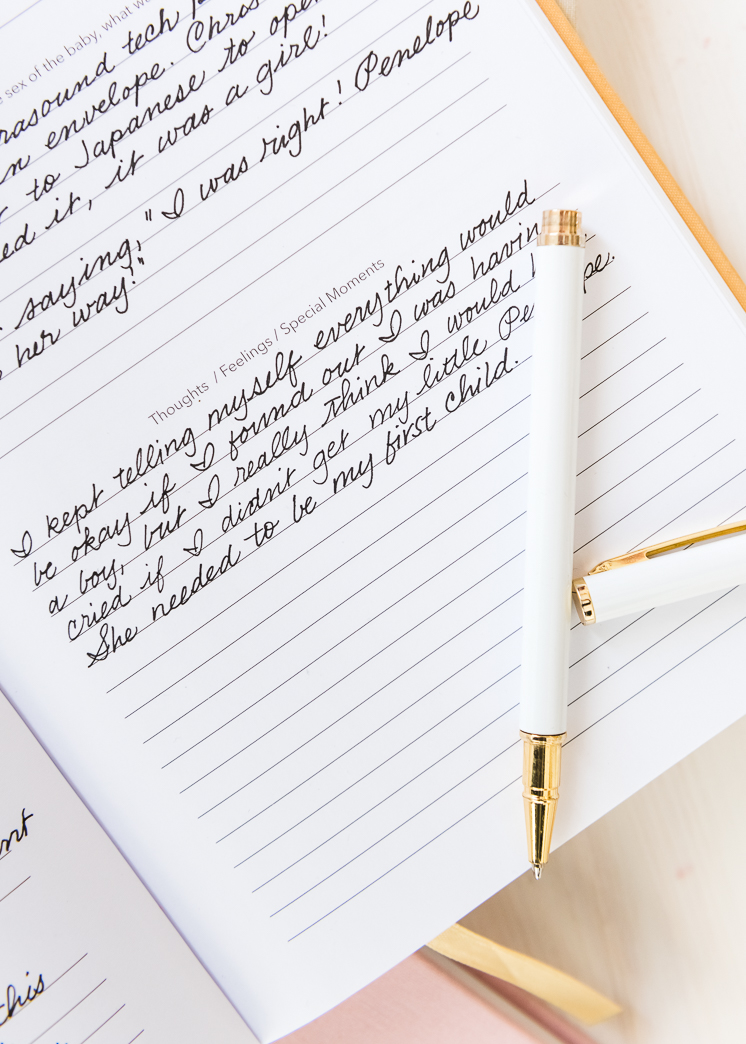 sex of the baby, what
tech
an envelope. Chris
to Japanese to open
it, it was a girl!
saying, "I was right! Penelope
her way!"
Thoughts / Feelings / Special Moments
I kept telling myself everything would
be okay if I found out I was having
a boy, but I really think I would
cried if I didn't get my little Penelope.
She needed to be my first child.
this